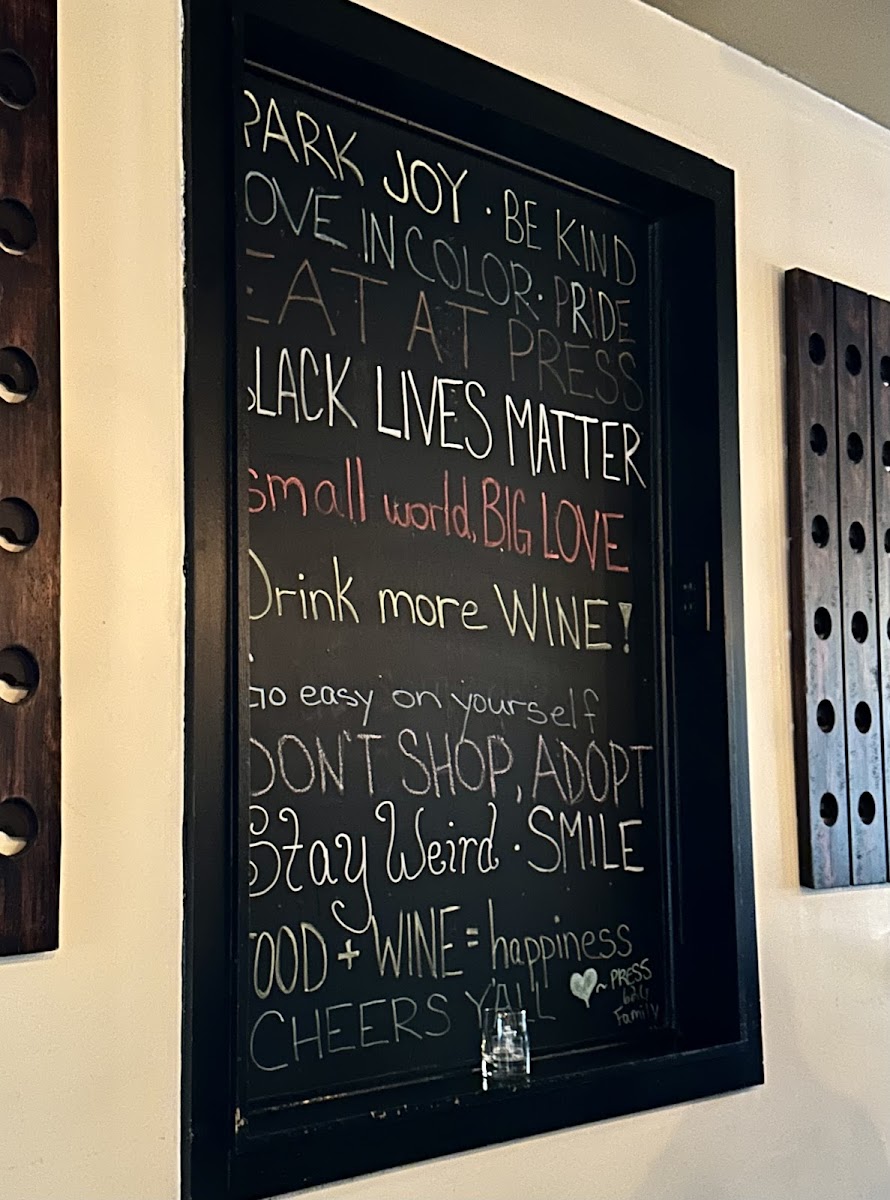 PARK JOY · BE KIND
OVE IN COLOR · PRIDE
EAT AT PRESS
BLACK LIVES MATTER
small world, BIG LOVE
Drink more WINE!
Go easy on yourself
DON'T SHOP, ADOPT
Stay Weird · SMILE
OOD + WINE = happiness
CHEERS Y'ALL ~ PRESS
626
Family